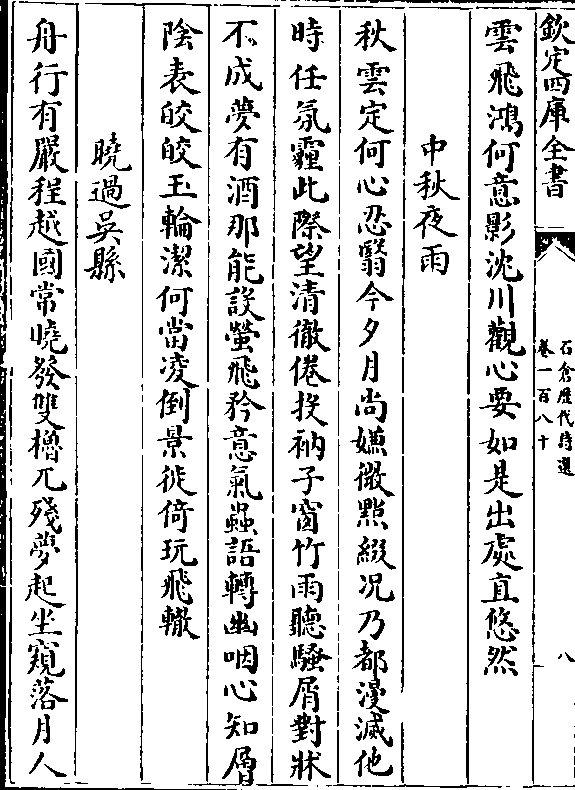 欽定四庫全書
石倉歷代詩選
卷一百八十
八
雲飛鴻何意影沈川觀心要如是出處直悠然
中秋夜雨
秋雲定何心忍翳今夕月尚嫌微點綴况乃都漫滅他
時任氛霾此際望清徹倦投衲子窗竹雨聽騷屑對牀
不成夢有酒那能設螢飛矜意氣蟲語轉幽咽心知層
陰表皎皎玉輪潔何當凌倒景徙倚玩飛轍
曉過吳縣
舟行有嚴程越國常曉發雙櫓兀殘夢起坐窺落月人